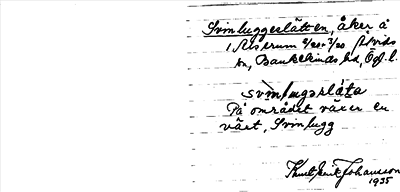 Svinluggerslätten, åker å
1 Åserum 2/20-3/20 Åtvids
sn, Bankekinds hd, Ög. l.
svìnlugarslä̀ta
På området växer en
växt, Svinlugg
Knut Erik Johansson
1935